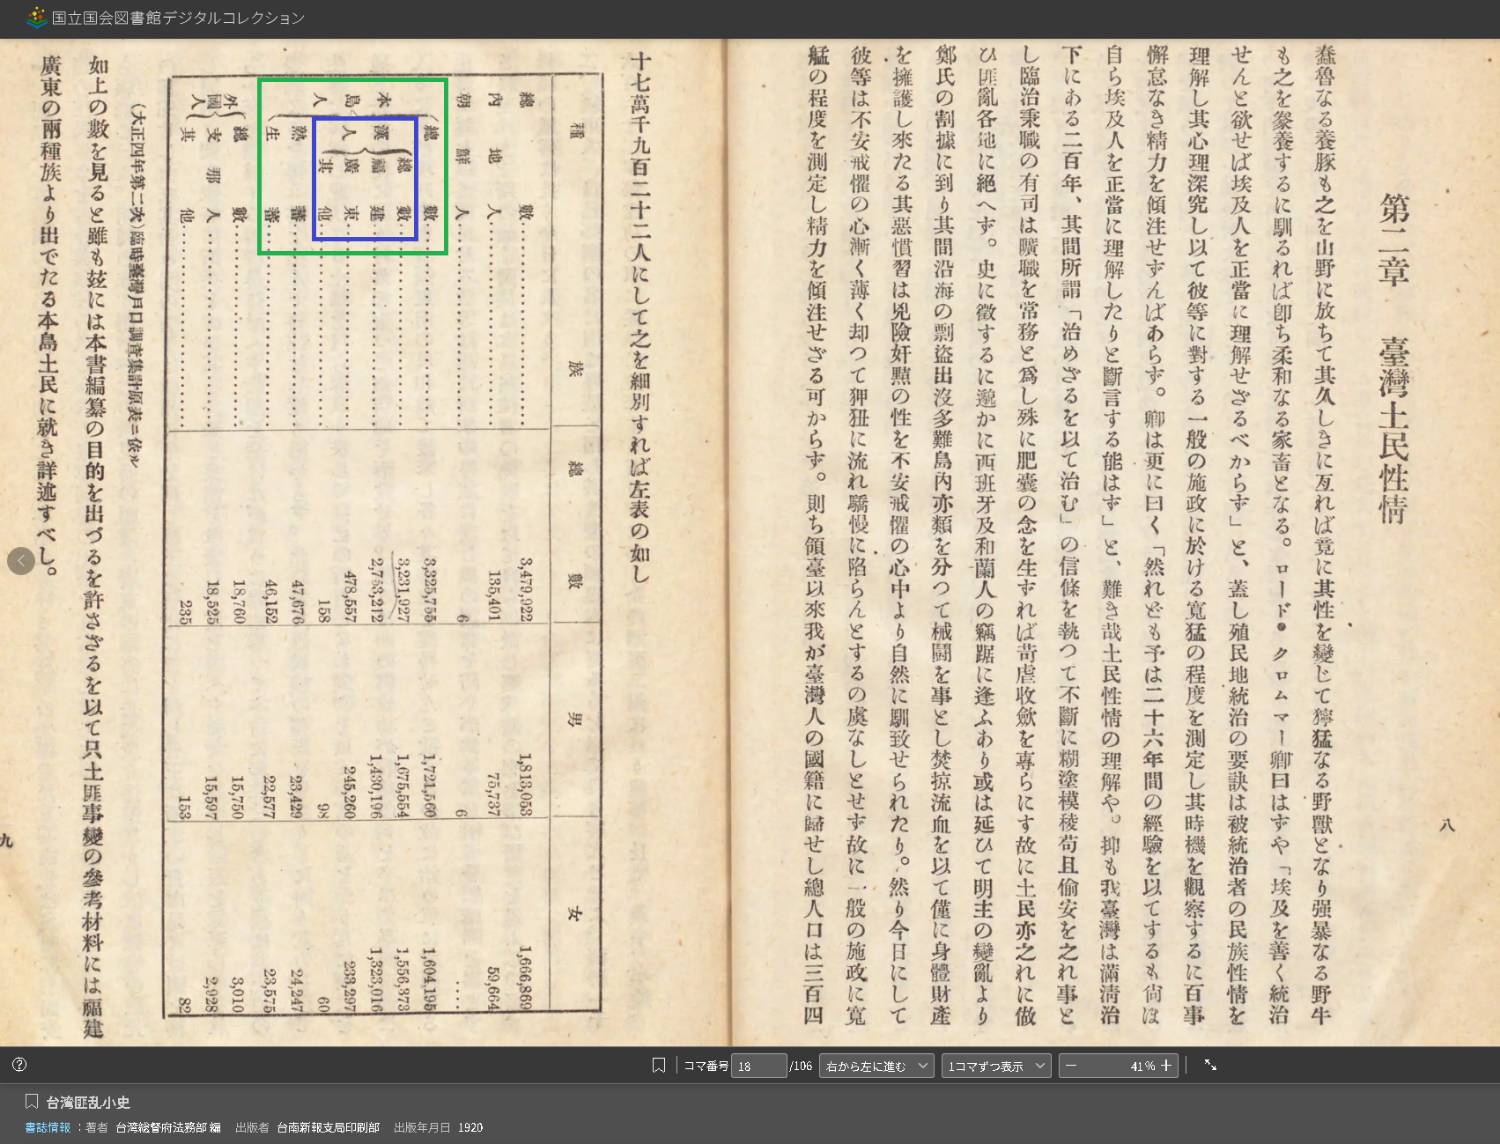 国立国会図書館デジタルコレクション
第二章 臺灣土民性情
蠢魯なる養豚も之を山野に放ちて其久しきに亙れば竟に其性を變じて獰猛なる野獸となり强暴なる野牛
も之を豢養するに馴るれば卽ち柔和なる家畜となる。ロード・クロムマー卿曰はすや「埃及を善く統治
せんと欲せば埃及人を正當に理解せざるべからす」と、蓋し殖民地統治の要訣は被統治者の民族性情を
理解し其心理深究し以て彼等に對する一般の施政に於ける寬猛の程度を測定し其時機を觀察するに百事
懈怠なき精力を傾注せずんばあらず。卿は更に曰く「然れども予は二十六年間の經驗を以てするも尙ほ
自ら埃及人を正當に理解したりと斷言する能はす」と、難き哉土民性情の理解や。抑も我臺灣は滿淸治
下にある二百年、其間所謂「治めざるを以て治む」の信條を執つて不斷に糊塗模稜苟且偷安を之れ事と
し臨治秉職の有司は曠職を常務と爲し殊に肥囊の念を生ずれば苛虐收斂を專らにす故に土民亦之れに倣
ひ匪亂各地に絕へす。史に徵するに遠かに西班牙及和蘭人の竊踞に逢ふあり或は延ひて明主の變亂より
鄭氏の割據に到り其間沿海の剽盜出沒多難島內亦類を分つて械鬪を事とし焚掠流血を以て僅に身體財產
を擁護し來たる其惡慣習は兇險奸黠の性を不安戒懼の心中より自然に馴致せられたり。然り今日にして
彼等は不安戒懼の心漸く薄く却つて狎狃に流れ驕慢に陷らんとするの虞なしとせす故に一般の施政に寬
艋の程度を測定し精力を傾注せざる可からす。則ち領臺以來我が臺灣人の國籍に歸せし總人口は三百四
八
十七萬千九百二十二人にして之を細別すれば左表の如し
種族 總數 男 女
總數 3,479,922 1,813,053 1,666,869
內地人 135,401 75,737 59,664
朝鮮人 6 6 ....
本島人 總數 3,325,755 1,721,560 1,604,195
漢人 總數 3,231,927 1,675,554 1,556,373
福建 2,753,212 1,430,196 1,323,016
廣東 478,557 245,260 233,297
其他 158 98 60
熟蕃 47,676 23,429 24,247
生蕃 46,152 22,577 23,575
外國人 總數 18,760 15,750 3,010
支那人 18,525 15,597 2,928
其他 235 153 82
(大正四年第二次)臨時臺灣戶口調查集計原表ニ依ル
如上の數を見ると雖も玆には本書編纂の目的を出づるを許さざるを以て只土匪事變の參考材料には福建
廣東の兩種族より出でたる本島土民に就き詳述すべし。
九
コマ番号 18 /106 右から左に進む 1コマずつ表示 41%
台湾匪乱小史
書誌情報 : 著者 台湾総督府法務部 編 出版者 台南新報支局印刷部 出版年月日 1920